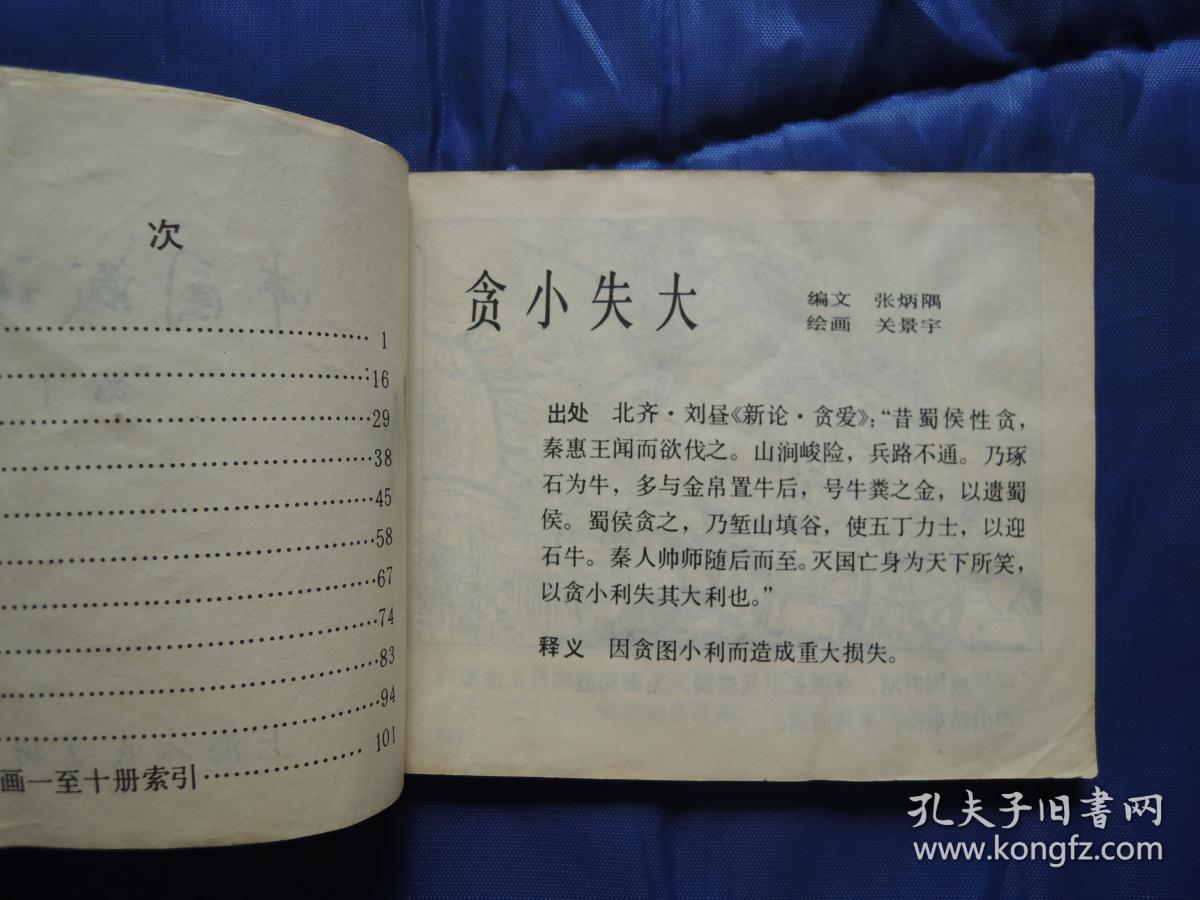 次
1
16
29
38
45
58
67
74
83
94
101
画一至十册索引
贪小失大
编文 张炳隅
绘画 关景宇
出处 北齐·刘昼《新论·贪爱》：“昔蜀侯性贪，
秦惠王闻而欲伐之。山涧峻险，兵路不通。乃琢
石为牛，多与金帛置牛后，号牛粪之金，以遗蜀
侯。蜀侯贪之，乃堑山填谷，使五丁力士，以迎
石牛。秦人帅师随后而至。灭国亡身为天下所笑，
以贪小利失其大利也。”
释义 因贪图小利而造成重大损失。
孔夫子旧书网
www.kongfz.com